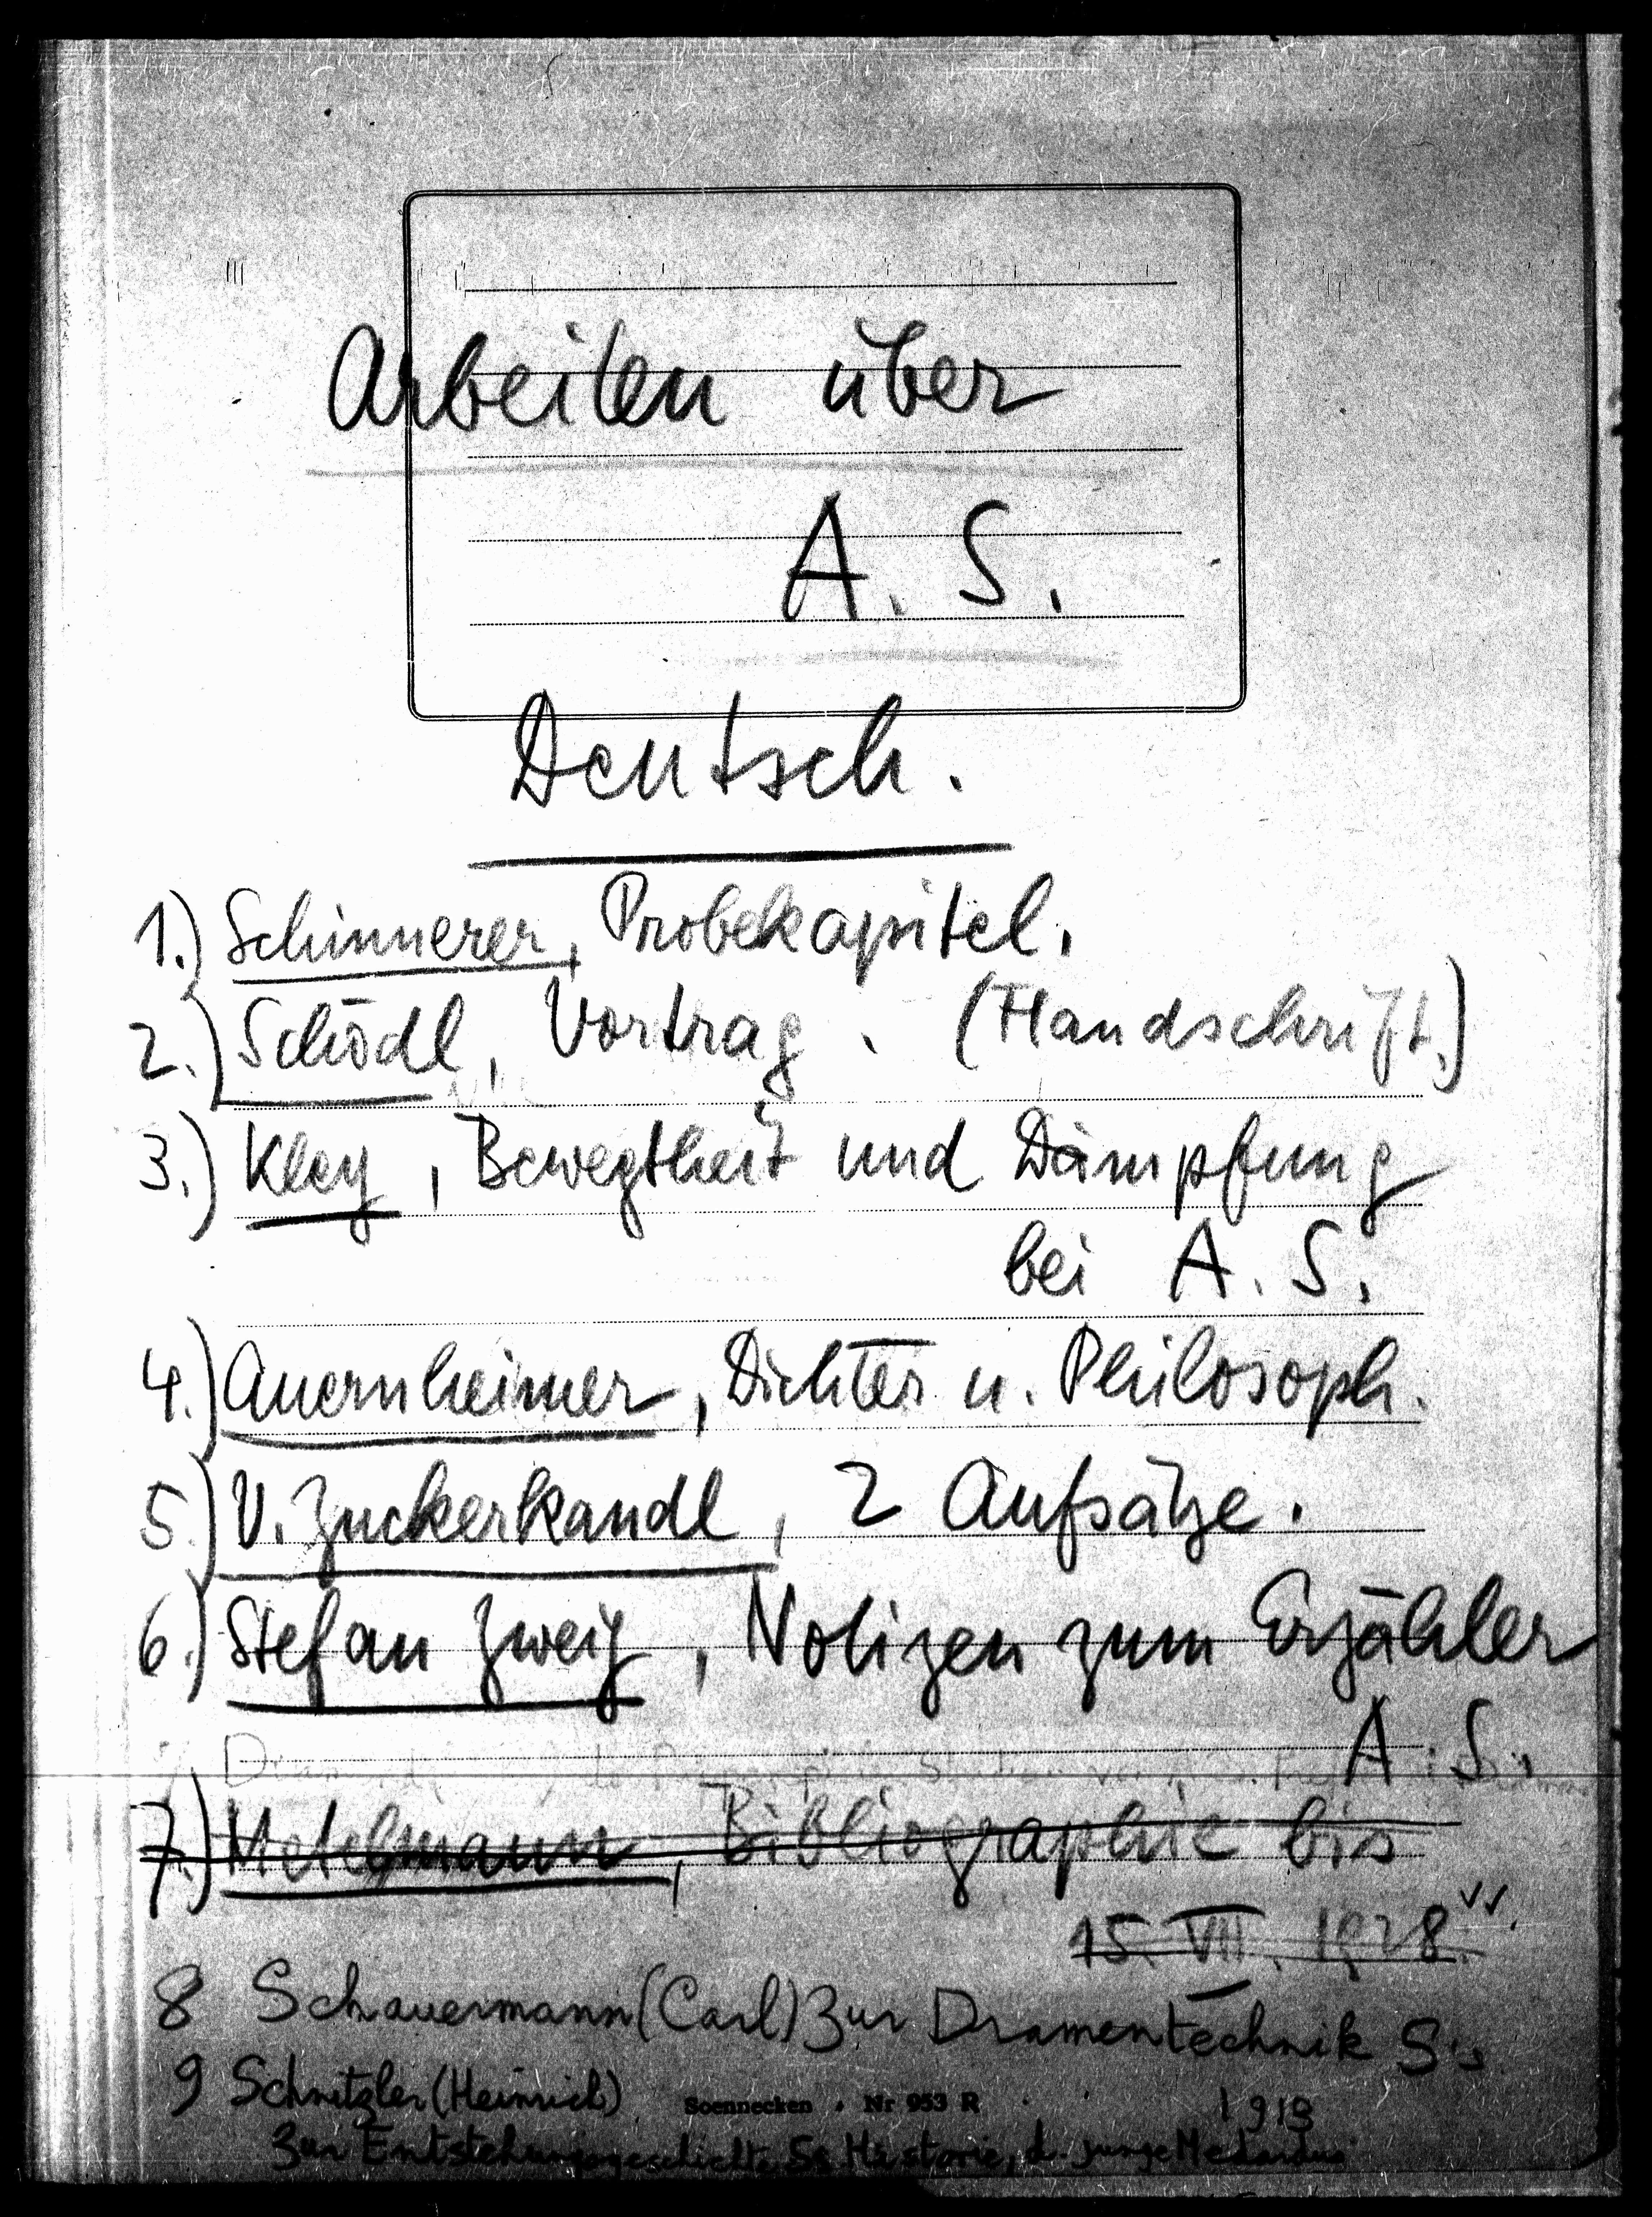 Arbeiten über
A. S.
Deutsch.
1.) Schinnerer, Probekapitel.
2.) Schödl, Vortrag. (Handschrift.)
3.) Kley, Bewegtheit und Dämpfung
bei A. S.
4.) Auernheimer, Dichter u. Philosoph.
5.) V. Zuckerkandl, 2 Aufsätze.
6.) Stefan Zweig, Notizen zum Erzähler
A. S.
7.) Metelmann, Bibliographie bis
15. VII. 1928.
8 Schauermann (Carl) Zur Dramentechnik S's
9 Schnitzler (Heinrich)
Soennecken . Nr 953 R
1913
Zur Entstehungsgeschichte Ss Historie, d. junge Medardus